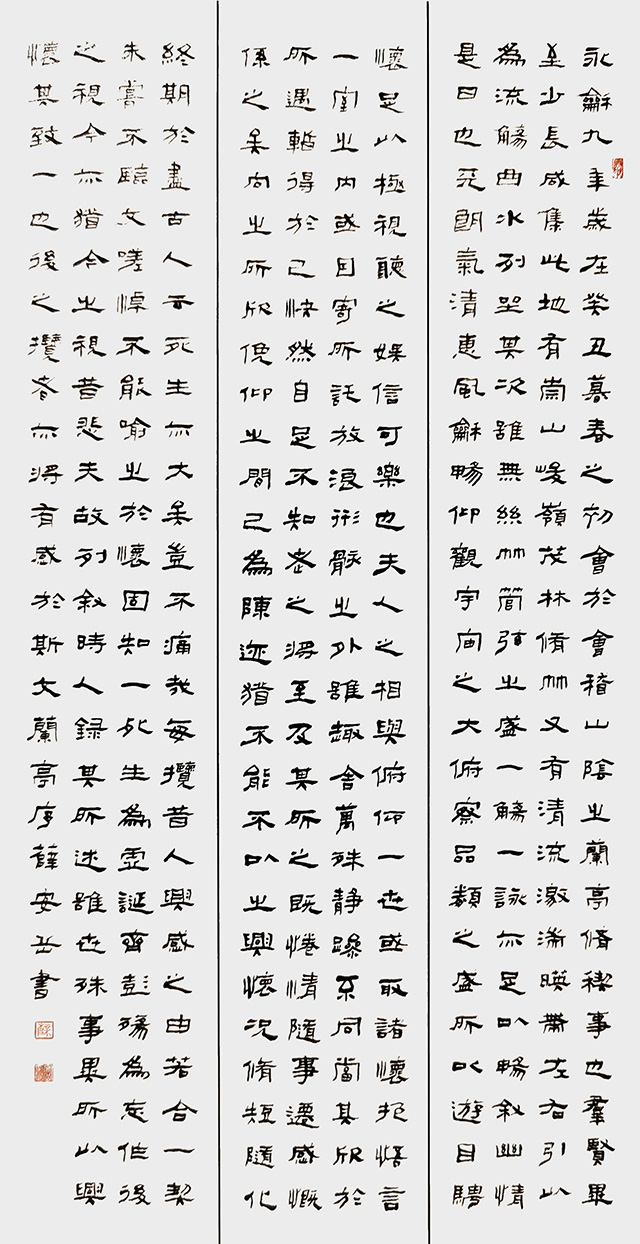 永龢九年歲在癸丑暮春之初會於會稽山陰之蘭亭脩禊事也羣賢畢
至少長咸集此地有崇山峻嶺茂林脩竹又有清流激湍暎帶左右引以
為流觴曲水列坐其次雖無絲竹管弦之盛一觴一詠亦足以暢敘幽情
是日也天朗氣清惠風龢暢仰觀宇宙之大俯察品類之盛所以遊目騁
懷足以極視聽之娛信可樂也夫人之相與俯仰一世或取諸懷抱悟言
一室之内或因寄所託放浪形骸之外雖趣舍萬殊静躁不同當其欣於
所遇暫得於己快然自足不知老之將至及其所之既惓情隨事遷感慨
係之矣向之所欣俛仰之間已為陳迹猶不能不以之興懷況脩短隨化
終期於盡古人云死生亦大矣豈不痛哉每攬昔人興感之由若合一契
未嘗不臨文嗟悼不能喻之於懷固知一死生為虛誕齊彭殤為妄作後
之視今亦猶今之視昔悲夫故列敘時人録其所述雖世殊事異所以興
懷其致一也後之攬者亦將有感於斯文蘭亭序薛安岳書